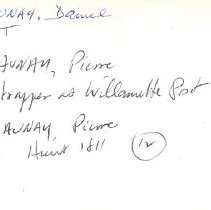 UNAY, Daniel
AUNAY, Pierre
trapper at Willamette Post
AUNAY, Pierre
Hunt 1811 12